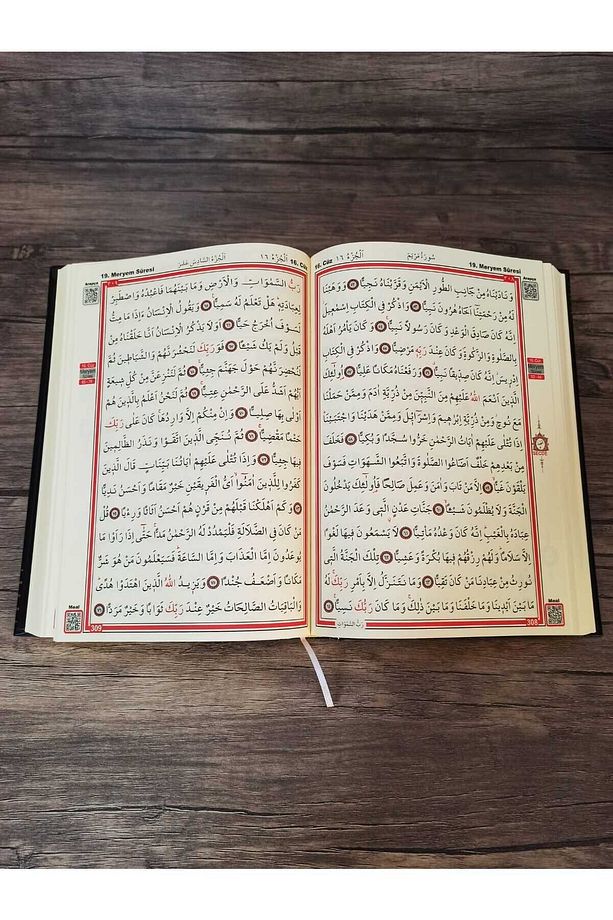 19. Meryem Sûresi
16. Cüz
اَلْجُزْءُ ١٦
سُورَةُ مَرْيَمَ
وَنَادَيْنَاهُ مِنْ جَانِبِ الطُّورِ الْاَيْمَنِ وَقَرَّبْنَاهُ نَجِيًّا ﴿٥٢﴾ وَوَهَبْنَا
لَهُ مِنْ رَحْمَتِنَٓا اَخَاهُ هٰرُونَ نَبِيًّا ﴿٥٣﴾ وَاذْكُرْ فِي الْكِتَابِ اِسْمٰعِيلَ
اِنَّهُ كَانَ صَادِقَ الْوَعْدِ وَكَانَ رَسُولًا نَبِيًّا ﴿٥٤﴾ وَكَانَ يَأْمُرُ اَهْلَهُ
بِالصَّلٰوةِ وَالزَّكٰوةِ وَكَانَ عِنْدَ رَبِّهِ مَرْضِيًّا ﴿٥٥﴾ وَاذْكُرْ فِي الْكِتَابِ
اِدْرِيسَ اِنَّهُ كَانَ صِدِّيقًا نَبِيًّا ﴿٥٦﴾ وَرَفَعْنَاهُ مَكَانًا عَلِيًّا ﴿٥٧﴾ اُو۬لٰٓئِكَ
الَّذِينَ اَنْعَمَ اللّٰهُ عَلَيْهِمْ مِنَ النَّبِيِّنَ مِنْ ذُرِّيَّةِ اٰدَمَ وَمِمَّنْ حَمَلْنَا
مَعَ نُوحٍ وَمِنْ ذُرِّيَّةِ اِبْرٰهِيمَ وَاِسْرَٓائِلَ وَمِمَّنْ هَدَيْنَا وَاجْتَبَيْنَا
اِذَا تُتْلٰى عَلَيْهِمْ اٰيَاتُ الرَّحْمٰنِ خَرُّوا سُجَّدًا وَبُكِيًّا ﴿٥٨﴾ فَخَلَفَ
مِنْ بَعْدِهِمْ خَلْفٌ اَضَاعُوا الصَّلٰوةَ وَاتَّبَعُوا الشَّهَوَاتِ فَسَوْفَ
يَلْقَوْنَ غَيًّا ﴿٥٩﴾ اِلَّا مَنْ تَابَ وَاٰمَنَ وَعَمِلَ صَالِحًا فَاُو۬لٰٓئِكَ يَدْخُلُونَ
الْجَنَّةَ وَلَا يُظْلَمُونَ شَيْـًٔا ﴿٦٠﴾ جَنَّاتِ عَدْنٍ الَّتِي وَعَدَ الرَّحْمٰنُ
عِبَادَهُ بِالْغَيْبِ اِنَّهُ كَانَ وَعْدُهُ مَأْتِيًّا ﴿٦١﴾ لَا يَسْمَعُونَ فِيهَا لَغْوًا
اِلَّا سَلَامًا وَلَهُمْ رِزْقُهُمْ فِيهَا بُكْرَةً وَعَشِيًّا ﴿٦٢﴾ تِلْكَ الْجَنَّةُ الَّتِي
نُورِثُ مِنْ عِبَادِنَا مَنْ كَانَ تَقِيًّا ﴿٦٣﴾ وَمَا نَتَنَزَّلُ اِلَّا بِاَمْرِ رَبِّكَ لَهُ
مَا بَيْنَ اَيْدِينَا وَمَا خَلْفَنَا وَمَا بَيْنَ ذٰلِكَ وَمَا كَانَ رَبُّكَ نَسِيًّا ﴿٦٤﴾
رَبُّ السَّمٰوَاتِ
308
Meal
19. Meryem Sûresi
اَلْجُزْءُ السَّادِسَ عَشَرَ
اَلْجُزْءُ ١٦
16. Cüz
رَبُّ السَّمٰوَاتِ وَالْاَرْضِ وَمَا بَيْنَهُمَا فَاعْبُدْهُ وَاصْطَبِرْ
لِعِبَادَتِهِ هَلْ تَعْلَمُ لَهُ سَمِيًّا ﴿٦٥﴾ وَيَقُولُ الْاِنْسَانُ ءَاِذَا مَا مِتُّ
لَسَوْفَ اُخْرَجُ حَيًّا ﴿٦٦﴾ اَوَلَا يَذْكُرُ الْاِنْسَانُ اَنَّا خَلَقْنَاهُ مِنْ
قَبْلُ وَلَمْ يَكُ شَيْـًٔا ﴿٦٧﴾ فَوَرَبِّكَ لَنَحْشُرَنَّهُمْ وَالشَّيَاطِينَ ثُمَّ
لَنُحْضِرَنَّهُمْ حَوْلَ جَهَنَّمَ جِثِيًّا ﴿٦٨﴾ ثُمَّ لَنَنْزِعَنَّ مِنْ كُلِّ شِيعَةٍ
اَيُّهُمْ اَشَدُّ عَلَى الرَّحْمٰنِ عِتِيًّا ﴿٦٩﴾ ثُمَّ لَنَحْنُ اَعْلَمُ بِالَّذِينَ هُمْ
اَوْلٰى بِهَا صِلِيًّا ﴿٧٠﴾ وَاِنْ مِنْكُمْ اِلَّا وَارِدُهَا كَانَ عَلٰى رَبِّكَ
حَتْمًا مَقْضِيًّا ﴿٧١﴾ ثُمَّ نُنَجِّي الَّذِينَ اتَّقَوْا وَنَذَرُ الظَّالِمِينَ
فِيهَا جِثِيًّا ﴿٧٢﴾ وَاِذَا تُتْلٰى عَلَيْهِمْ اٰيَاتُنَا بَيِّنَاتٍ قَالَ الَّذِينَ
كَفَرُوا لِلَّذِينَ اٰمَنُٓوا اَيُّ الْفَرِيقَيْنِ خَيْرٌ مَقَامًا وَاَحْسَنُ نَدِيًّا
﴿٧٣﴾ وَكَمْ اَهْلَكْنَا قَبْلَهُمْ مِنْ قَرْنٍ هُمْ اَحْسَنُ اَثَاثًا وَرِءْيًا ﴿٧٤﴾ قُلْ
مَنْ كَانَ فِي الضَّلَالَةِ فَلْيَمْدُدْ لَهُ الرَّحْمٰنُ مَدًّا حَتّٰٓى اِذَا رَاَوْا مَا
يُوعَدُونَ اِمَّا الْعَذَابَ وَاِمَّا السَّاعَةَ فَسَيَعْلَمُونَ مَنْ هُوَ شَرٌّ
مَكَانًا وَاَضْعَفُ جُنْدًا ﴿٧٥﴾ وَيَزِيدُ اللّٰهُ الَّذِينَ اهْتَدَوْا هُدًى
وَالْبَاقِيَاتُ الصَّالِحَاتُ خَيْرٌ عِنْدَ رَبِّكَ ثَوَابًا وَخَيْرٌ مَرَدًّا ﴿٧٦﴾
309
Meal